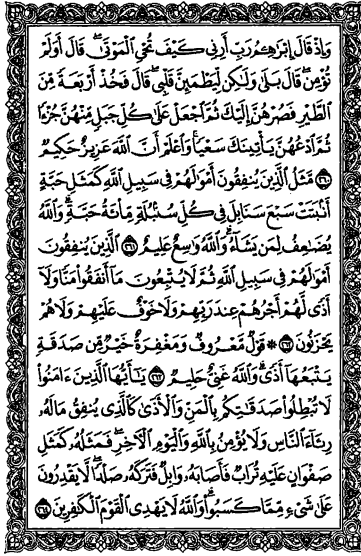 وَإِذْ قَالَ إِبْرَٰهِـۧمُ رَبِّ أَرِنِى كَيْفَ تُحْىِ ٱلْمَوْتَىٰ ۖ قَالَ أَوَلَمْ
تُؤْمِن ۖ قَالَ بَلَىٰ وَلَـٰكِن لِّيَطْمَئِنَّ قَلْبِى ۖ قَالَ فَخُذْ أَرْبَعَةً مِّنَ
ٱلطَّيْرِ فَصُرْهُنَّ إِلَيْكَ ثُمَّ ٱجْعَلْ عَلَىٰ كُلِّ جَبَلٍ مِّنْهُنَّ جُزْءًا
ثُمَّ ٱدْعُهُنَّ يَأْتِينَكَ سَعْيًا ۚ وَٱعْلَمْ أَنَّ ٱللَّهَ عَزِيزٌ حَكِيمٌ
﴿٢٦٠﴾ مَّثَلُ ٱلَّذِينَ يُنفِقُونَ أَمْوَٰلَهُمْ فِى سَبِيلِ ٱللَّهِ كَمَثَلِ حَبَّةٍ
أَنۢبَتَتْ سَبْعَ سَنَابِلَ فِى كُلِّ سُنۢبُلَةٍ مِّا۟ئَةُ حَبَّةٍ ۗ وَٱللَّهُ
يُضَـٰعِفُ لِمَن يَشَآءُ ۗ وَٱللَّهُ وَٰسِعٌ عَلِيمٌ ﴿٢٦١﴾ ٱلَّذِينَ يُنفِقُونَ
أَمْوَٰلَهُمْ فِى سَبِيلِ ٱللَّهِ ثُمَّ لَا يُتْبِعُونَ مَآ أَنفَقُوا۟ مَنًّا وَلَآ
أَذًى ۙ لَّهُمْ أَجْرُهُمْ عِندَ رَبِّهِمْ وَلَا خَوْفٌ عَلَيْهِمْ وَلَا هُمْ
يَحْزَنُونَ ﴿٢٦٢﴾ ۞ قَوْلٌ مَّعْرُوفٌ وَمَغْفِرَةٌ خَيْرٌ مِّن صَدَقَةٍ
يَتْبَعُهَآ أَذًى ۗ وَٱللَّهُ غَنِىٌّ حَلِيمٌ ﴿٢٦٣﴾ يَـٰٓأَيُّهَا ٱلَّذِينَ ءَامَنُوا۟
لَا تُبْطِلُوا۟ صَدَقَـٰتِكُم بِٱلْمَنِّ وَٱلْأَذَىٰ كَٱلَّذِى يُنفِقُ مَالَهُۥ
رِئَآءَ ٱلنَّاسِ وَلَا يُؤْمِنُ بِٱللَّهِ وَٱلْيَوْمِ ٱلْـَٔاخِرِ ۖ فَمَثَلُهُۥ كَمَثَلِ
صَفْوَانٍ عَلَيْهِ تُرَابٌ فَأَصَابَهُۥ وَابِلٌ فَتَرَكَهُۥ صَلْدًا ۖ لَّا يَقْدِرُونَ
عَلَىٰ شَىْءٍ مِّمَّا كَسَبُوا۟ ۗ وَٱللَّهُ لَا يَهْدِى ٱلْقَوْمَ ٱلْكَـٰفِرِينَ ﴿٢٦٤﴾